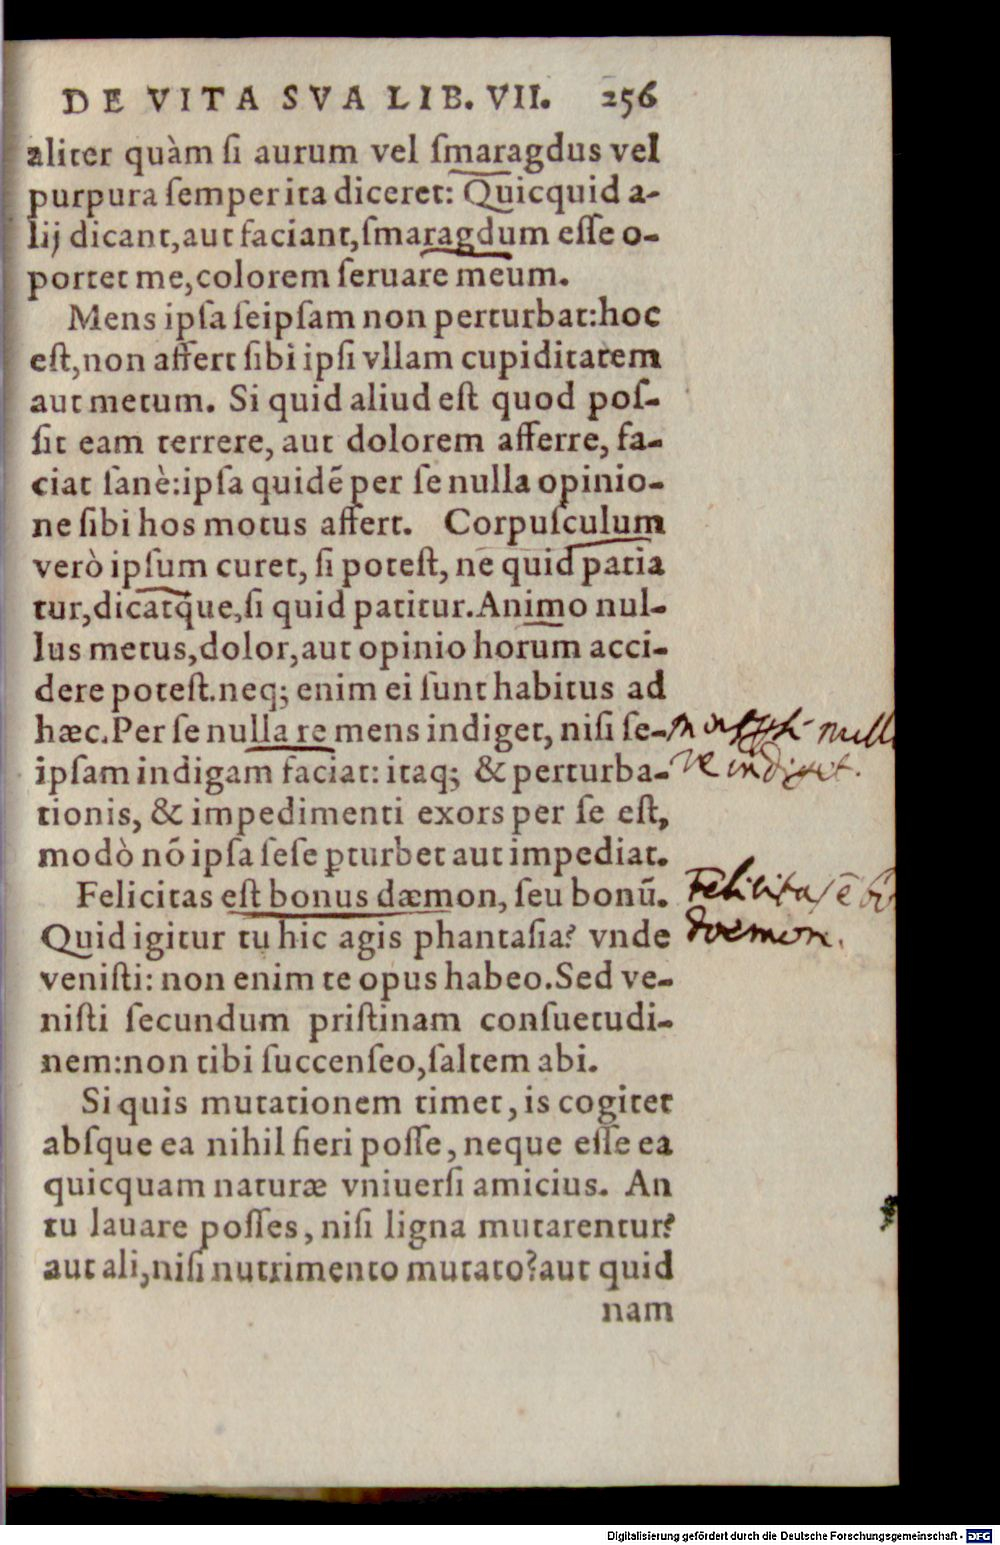 DE VITA SVA LIB. VII. 256
aliter quàm ſi aurum vel ſmaragdus vel
purpura ſemper ita diceret: Quicquid a-
lij dicant, aut faciant, ſmaragdum eſſe o-
portet me, colorem ſeruare meum.
Mens ipſa ſeipſam non perturbat: hoc
eſt, non affert ſibi ipſi vllam cupiditatem
aut metum. Si quid aliud eſt quod poſ-
ſit eam terrere, aut dolorem afferre, fa-
ciat ſanè: ipſa quidē per ſe nulla opinio-
ne ſibi hos motus affert. Corpuſculum
verò ipſum curet, ſi poteſt, ne quid patia
tur, dicatq́ue, ſi quid patitur. Animo nul-
lus metus, dolor, aut opinio horum acci-
dere poteſt. neq; enim ei ſunt habitus ad
hæc. Per ſe nulla re mens indiget, niſi ſe-
ipſam indigam faciat: itaq; & perturba-
tionis, & impedimenti exors per ſe eſt,
modò nō ipſa ſeſe ꝑturbet aut impediat.
Felicitas eſt bonus dæmon, ſeu bonū.
Quid igitur tu hic agis phantaſia? vnde
veniſti: non enim te opus habeo. Sed ve-
niſti ſecundum priſtinam conſuetudi-
nem: non tibi ſuccenſeo, ſaltem abi.
Si quis mutationem timet, is cogitet
abſque ea nihil fieri poſſe, neque eſſe ea
quicquam naturæ vniuerſi amicius. An
tu lauare poſſes, niſi ligna mutarentur?
aut ali, niſi nutrimento mutato? aut quid
nam
null
re indiget.
Felicitas ē bo
dæmon.
Digitalisierung gefördert durch die Deutsche Forschungsgemeinschaft - DFG